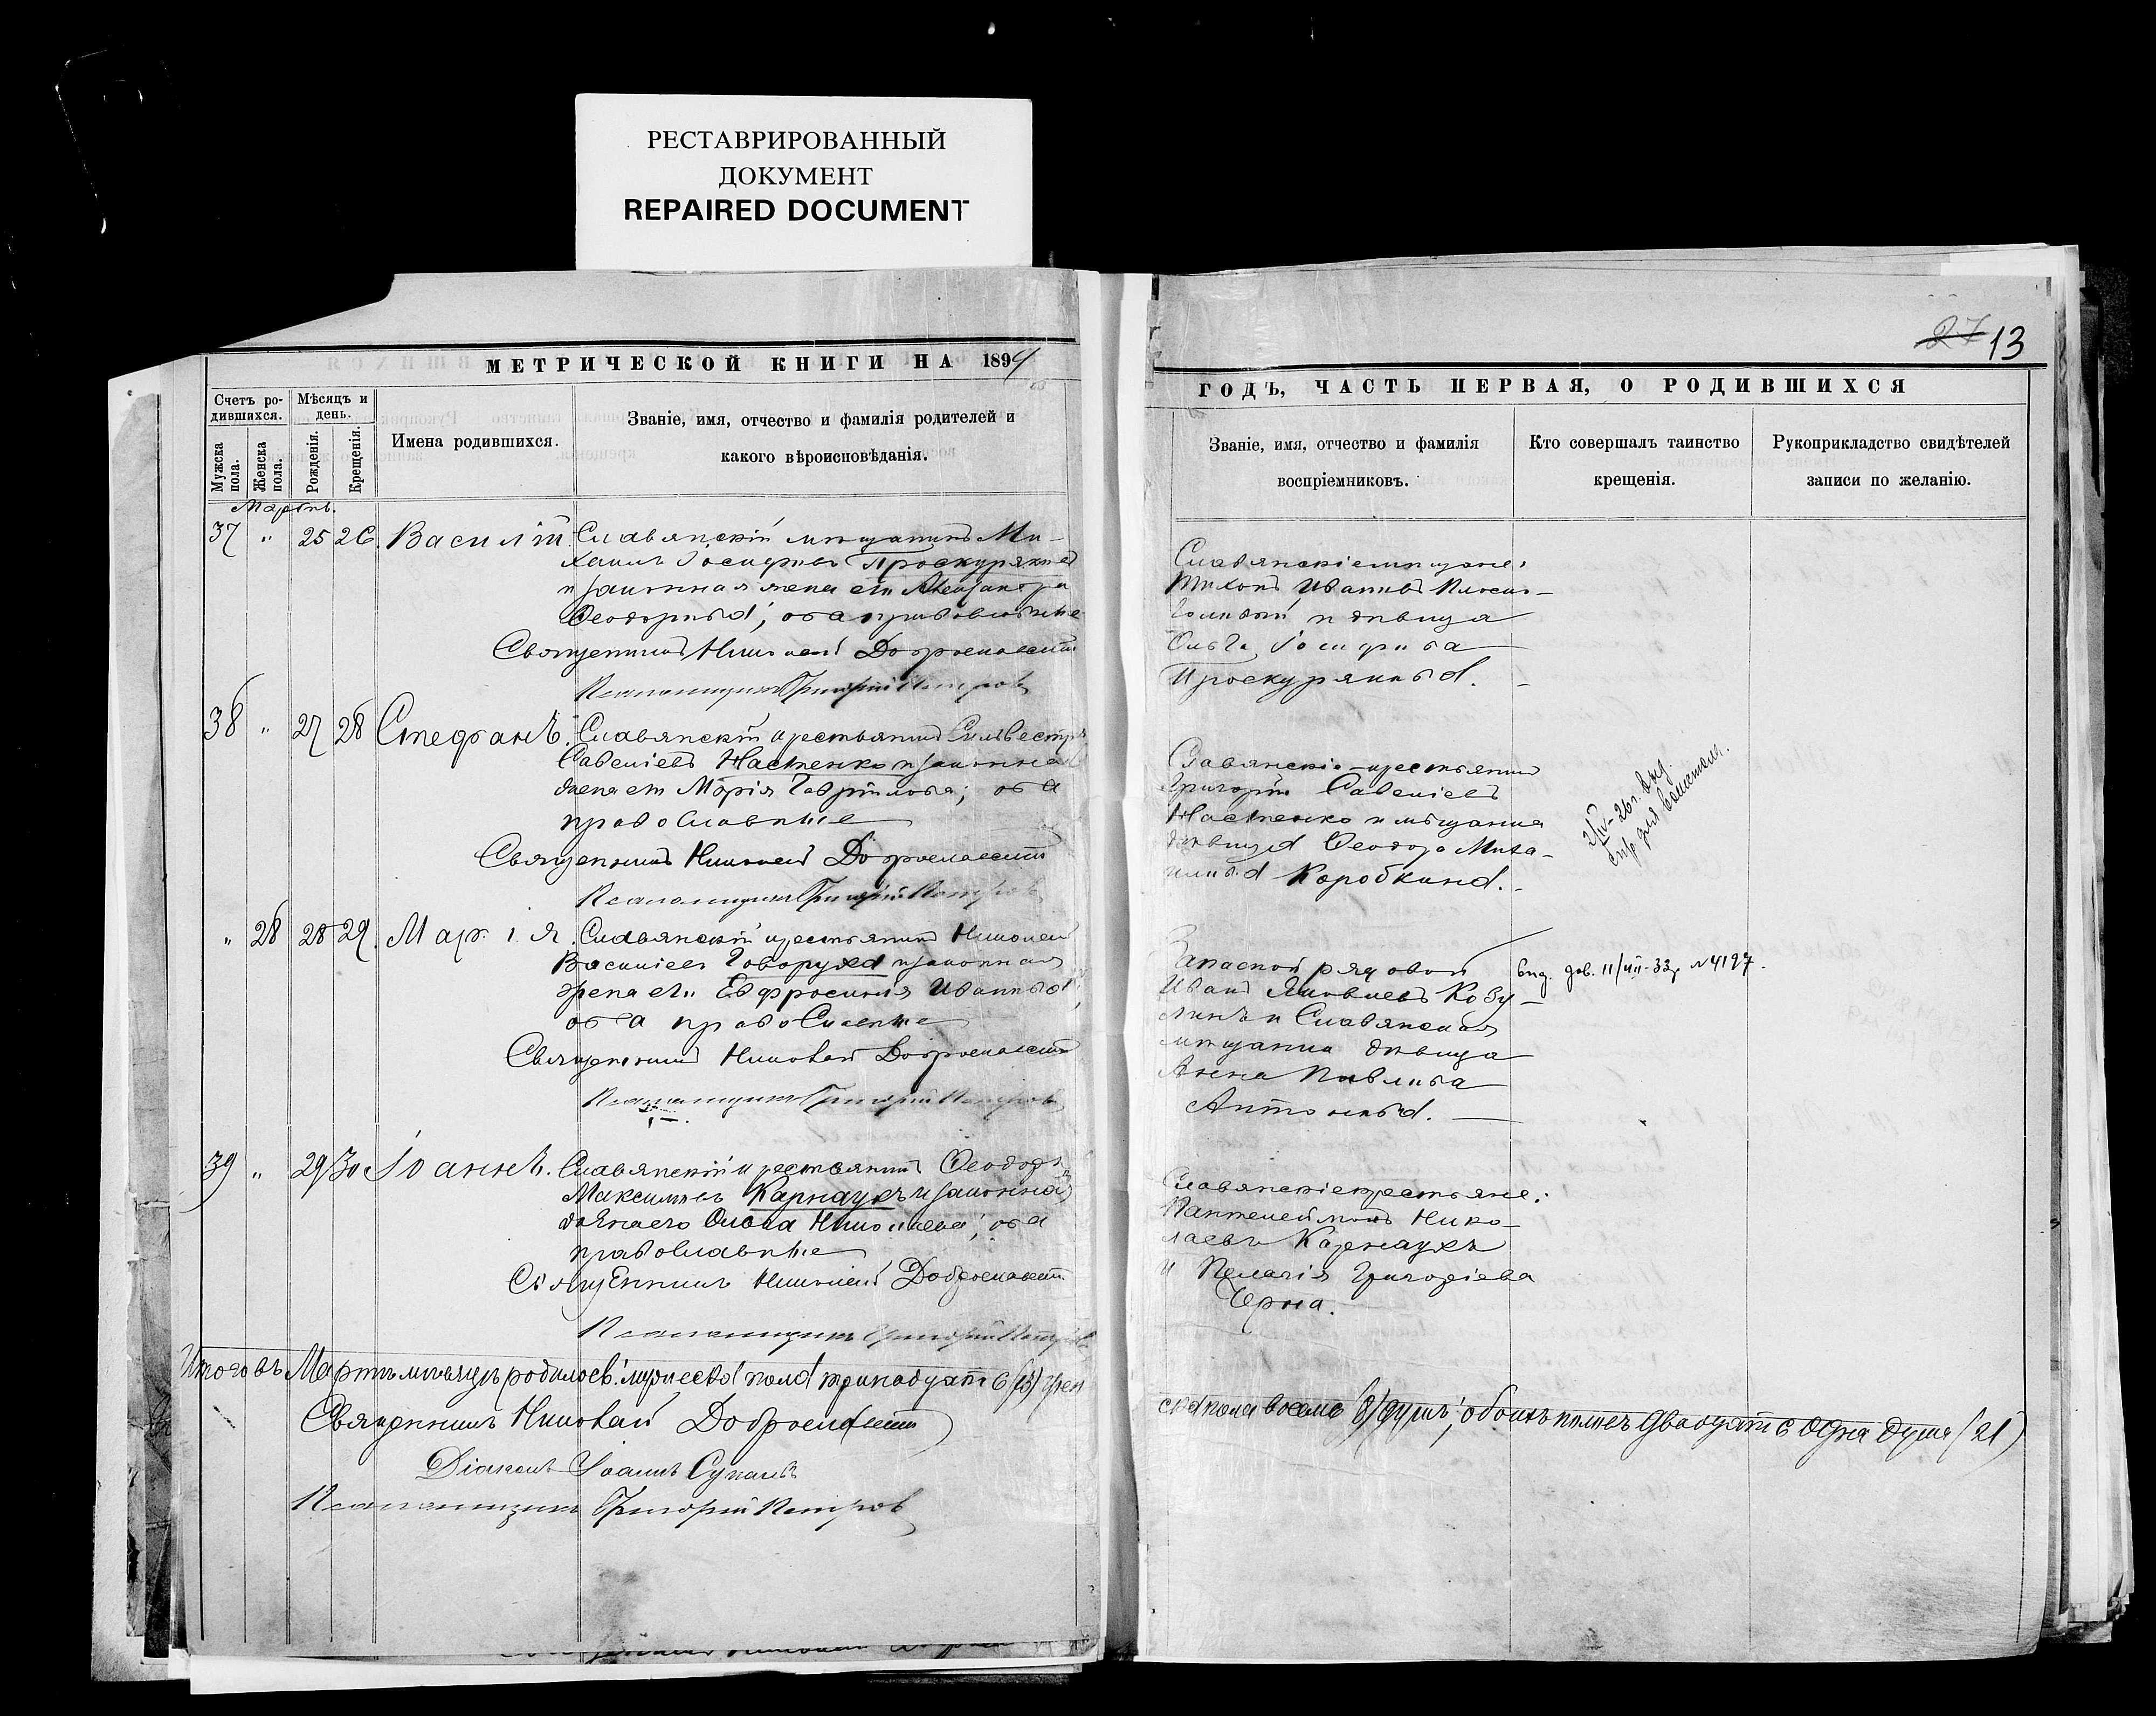 РЕСТАВРИРОВАННЫЙ
ДОКУМЕНТ
REPAIRED DOCUMENT
МЕТРИЧЕСКОЙ КНИГИ НА 1894
Счетъ ро-
дившихся.
Мѣсяцъ и
день.
Мужска
пола.
Женска
пола.
Рожденія.
Крещенія.
Имена родившихся.
Званіе, имя, отчество и фамилія родителей и
какого вѣроисповѣданія.
Мартъ.
37 " 25 26 Василій. Славянскій мѣщанинъ Ми-
хаилъ Іосифовъ Проскуряковъ
и законная жена его Александра
Ѳеодорова; оба православные
Священникъ Николай Доброславскій
Псаломщикъ Григорій Петровъ
38 " 27 28 Стефанъ. Славянскій крестьянинъ Сильвестръ
Савеліевъ Настенко и законная
жена его Марія Гаврілова; оба
православные
Священникъ Николай Доброславскій
Псаломщикъ Григорій Петровъ
" 28 28 29. Марія. Славянскій крестьянинъ Николай
Василіевъ Говоруха и законная
жена его Евфросинія Иванова;
оба православные
Священникъ Николай Доброславскій
Псаломщикъ Григорій Петровъ
39 " 29 30 Іоаннъ. Славянскій крестьянинъ Ѳеодоръ
Максимовъ Карнаухъ и законная
жена его Ольга Николаева; оба
православные
Священникъ Николай Доброславскій
Псаломщикъ Григорій Петровъ
Итого въ Мартѣ мѣсяцѣ родилось: мужеска пола тринадцать (13) жен
Священникъ Николай Доброславскій
Діаконъ Іоаннъ
Псаломщикъ Григорій Петровъ
27 13
ГОДЪ, ЧАСТЬ ПЕРВАЯ, О РОДИВШИХСЯ
Званіе, имя, отчество и фамилія
воспріемниковъ.
Кто совершалъ таинство
крещенія.
Рукоприкладство свидѣтелей
записи по желанію.
Славянскіе мѣщане:
Тихонъ Ивановъ
и дѣвица
Ольга Іосифова
Проскурякова.
Славянскіе крестьянинъ
Григорій Савеліевъ
Настенко и мѣщанка
дѣвица Ѳеодора Миха-
илова Коробкина.
Запасной рядовой
Иванъ Яковлевъ Козу-
линъ и Славянская
мѣщанка дѣвица
Анна Павлова
Антонова.
выд. дов. 11/VII-33г. №4197.
Славянскіе крестьяне:
Пантелеймонъ Нико-
лаевъ Карнаухъ
и Пелагія Григоріева
Черна.
ска пола восемь (8) душъ; обоихъ половъ двадцать одна душа (21)